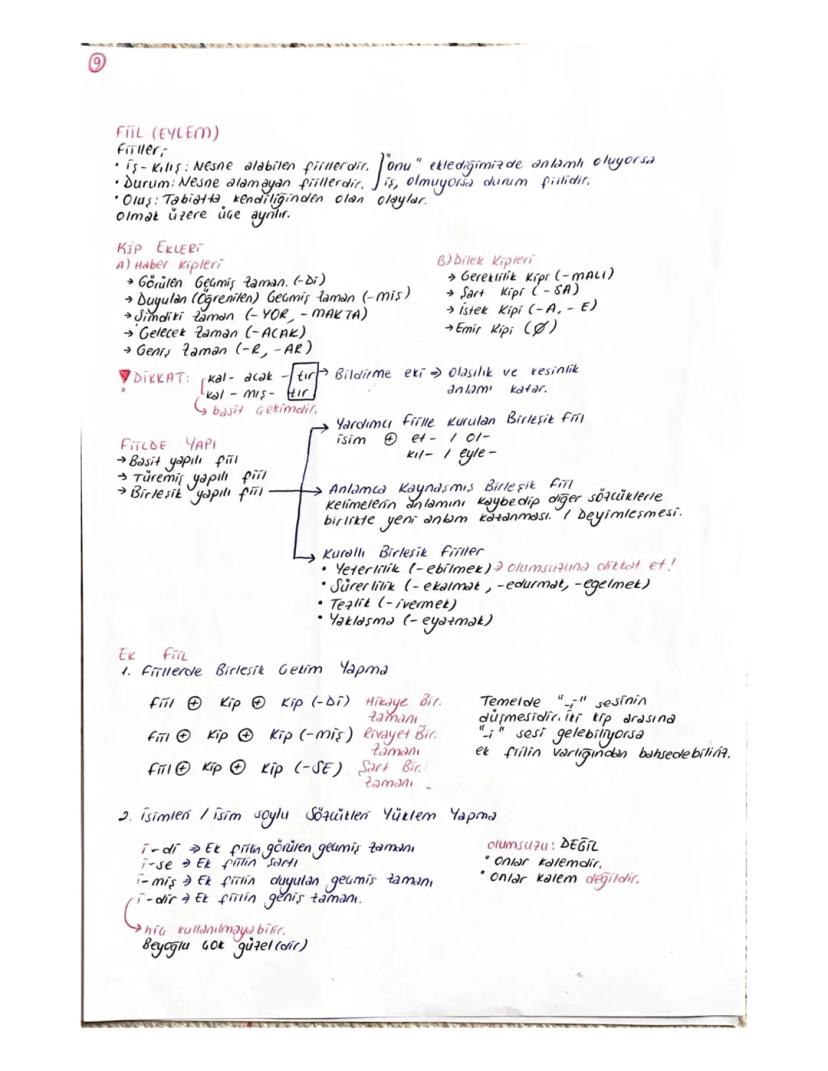 9
FİİL (EYLEM)
Fiiller;
• İş-Kılış: Nesne alabilen fiillerdir.
• Durum: Nesne alamayan fiillerdir.
"onu" eklediğimizde anlamlı oluyorsa
iş, olmuyorsa durum fiilidir.
• Oluş: Tabiatta kendiliğinden olan olaylar.
Olmak üzere üçe ayrılır.
KİP EKLERİ
A) Haber Kipleri
→ Görülen Geçmiş Zaman. (-Dİ)
→ Duyulan (Öğrenilen) Geçmiş Zaman (-miş)
→ Şimdiki Zaman (-YOR, -MAKTA)
→ Gelecek Zaman (-ACAK)
→ Geniş Zaman (-R, -AR)
B) Dilek Kipleri
→ Gereklilik Kipi (-MALI)
→ Şart Kipi (-SA)
→ İstek Kipi (-A, -E)
→ Emir Kipi (Ø)
DİKKAT: kal-acak-tır → Bildirme eki ⇒ Olasılık ve kesinlik
anlamı katar.
kal-mış-tır
↳ basit çekimdir.
FİİLDE YAPI
→ Basit yapılı fiil
→ Türemiş yapılı fiil
→ Birleşik yapılı fiil
→ Yardımcı Fiille Kurulan Birleşik Fiil
isim ⊕ et- / ol-
kıl- / eyle-
→ Anlamca Kaynaşmış Birleşik Fiil
Kelimelerin anlamını kaybedip diğer sözcüklerle
birlikte yeni anlam kazanması. / Deyimleşmesi.
→ Kurallı Birleşik Fiiller
• Yeterlilik (-ebilmek) → olumsuzuna dikkat et!
• Sürerlilik (-ekalmak, -edurmak, -egelmek)
• Tezlik (-ivermek)
• Yaklaşma (-eyazmak)
EK FİİL
1. Fiillerde Birleşik Çekim Yapma
Fiil ⊕ Kip ⊕ Kip (-Dİ) Hikaye Bir.
Zamanı
Fiil ⊕ Kip ⊕ Kip (-miş) Rivayet Bir.
Zamanı
Fiil ⊕ Kip ⊕ Kip (-SE) Şart Bir.
Zamanı
Temelde "-i" sesinin
düşmesidir. iki kip arasına
"-i" sesi gelebiliyorsa
ek fiilin varlığından bahsedebiliriz.
2. İsimleri / isim soylu Sözcükleri Yüklem Yapma
i-di ⇒ Ek fiilin görülen geçmiş zamanı
i-se → Ek fiilin şartı
i-miş → Ek fiilin duyulan geçmiş zamanı
i-dir → Ek fiilin geniş zamanı.
↳ hiç kullanılmayabilir.
Beyoğlu çok güzel(dir)
olumsuzu: DEĞİL
• Onlar kalemdir.
• Onlar kalem değildir.